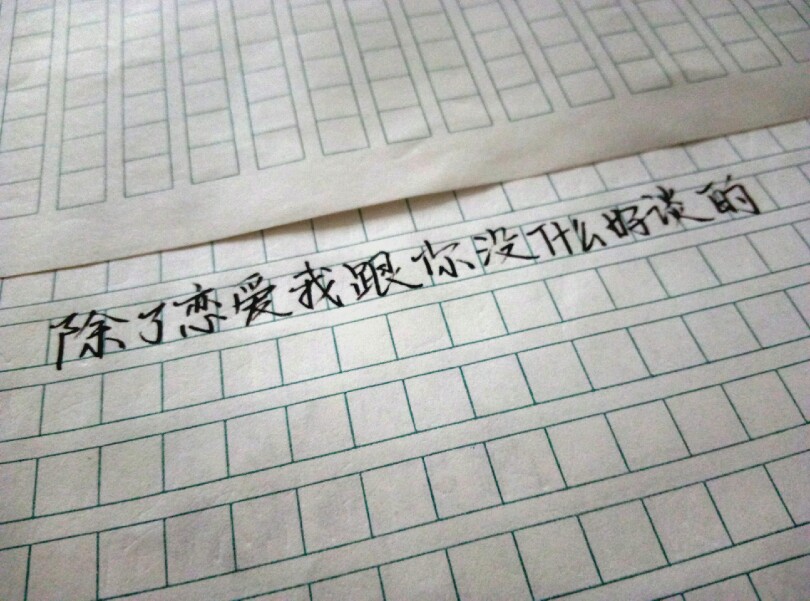 除了恋爱我跟你没什么好谈的